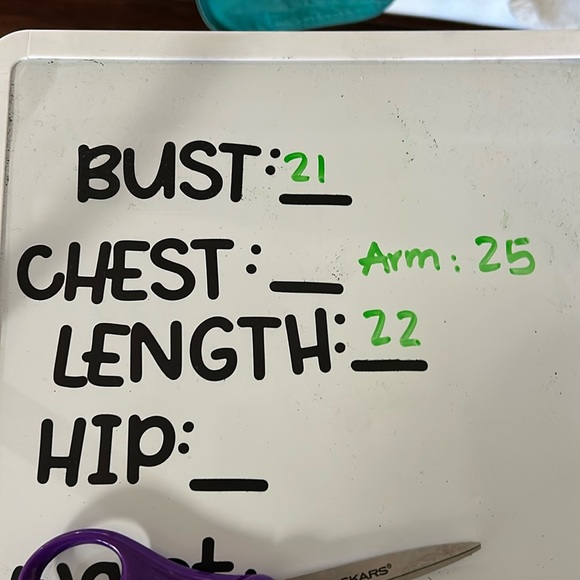 BUST: 21
CHEST: __ Arm: 25
LENGTH: 22
HIP: __